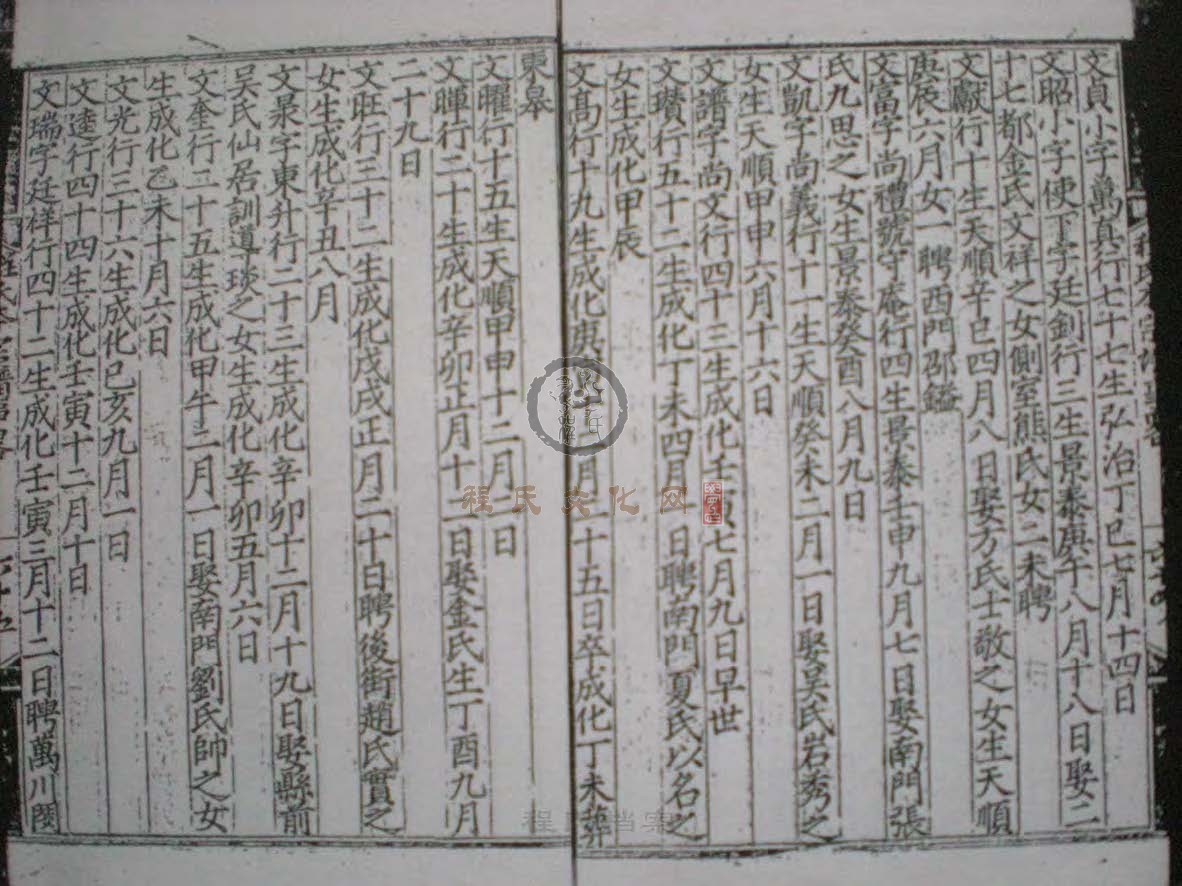 文貞小字萬真行七十七生弘治丁巳七月十四日
文昭小字使丁字廷釗行三生景泰庚午八月十八日娶二
十七都金氏文祥之女側室熊氏女二未聘
文獻行十生天順辛巳四月八日娶方氏士敬之女生天順
庚辰六月女一聘西門邵鎰
文富字尚禮號守庵行四生景泰壬申九月七日娶南門張
氏九思之女生景泰癸酉八月九日
文凱字尚義行十一生天順癸未二月一日娶吴氏岩秀之
女生天順甲申六月十六日
文譜字尚文行四十三生成化壬寅七月九日早世
文瓚行五十二生成化丁未四月一日聘南門夏氏以名之
女生成化甲辰
文高行十九生成化庚 二月二十五日卒成化丁未葬
東皋
文曜行十五生天順甲申十二月二日
文暉行二十生成化辛卯正月十一日娶金氏生丁酉九月
二十九日
文旺行三十二生成化戊戌正月二十日聘後街趙氏實之
女生成化辛丑八月
文杲字東升行二十三生成化辛卯十二月十九日娶縣前
吴氏仙居訓導琰之女生成化辛卯五月六日
文奎行二十五生成化甲午二月一日娶南門劉氏帥之女
生成化乙未十月六日
文光行三十六生成化己亥九月一日
文逵行四十四生成化壬寅十二月十日
文瑞字廷祥行四十二生成化壬寅三月十二日聘萬川閔
程氏文化网
程氏档案